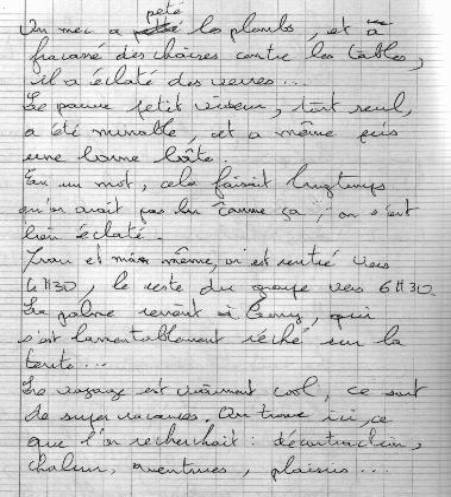 peté
Un mec a peté les plombs, et a
fracassé des chaises contre les tables,
il a éclaté des verres...
Le pauvre petit viseur, tout seul,
a été minable, et a même pris
une bonne boîte.
En un mot, cela faisait longtemps
qu'on avait pas bu comme ça ; on s'est
bien éclaté.
Fran et moi même, on est rentré vers
4H30, le reste du groupe vers 6H30.
La palme revient à Gerry, qui
s'est lamentablement séché sur la
tente...
Le voyage est vraiment cool, ce sont
de super vacances. On trouve ici, ce
que l'on recherchait : décontraction,
chaleur, aventures, plaisirs...